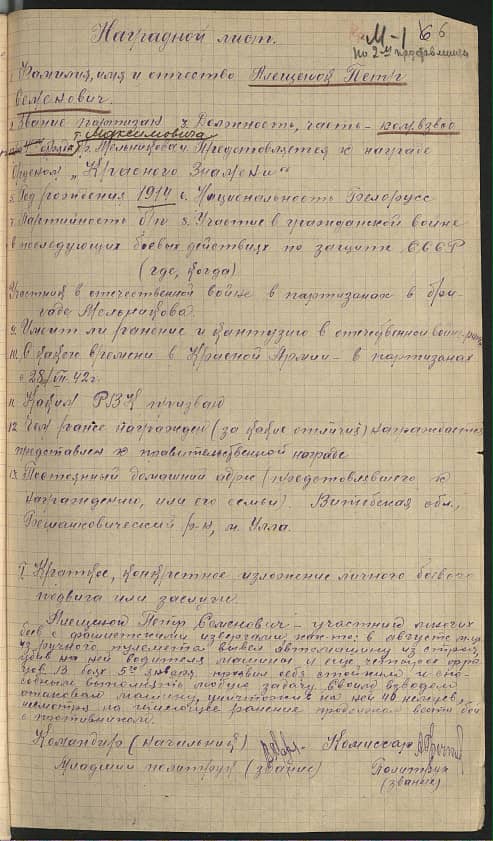 М-1 66
по 2му представлен.
Наградной лист.
1. Фамилия, имя и отчество Алещенок Петр
Семенович.
2. Звание партизан 3. Должность, часть - комвзвод
т. Максимовича
отряда бр. Мельникова. Представляется к награде
Орденом „Красного Знамени"
5. Год рождения 1914 6. Национальность Белорусс
7. Партийность б/п 8. Участие в гражданской войне
в последующих боевых действиях по защите СССР
(где, когда)
Участник в отечественной войне в партизанах в бри-
гаде Мельникова.
9. Имеет ли ранение и контузию в отечественной войне
10. С какого времени в Красной Армии - в партизанах
с 28/VII. 42 г.
11 Каким РВК призван
12 Чем ранее награжден (за какие отличия) награждается
представлен к правительственной награде
13. Постоянный домашний адрес (представляемого к
награждению, или его семьи). Витебская обл.,
Бешанковический р-н, м. Улла.
I Краткое, конкретное изложение личного боевого
подвига или заслуги.
Алещенок Петр Семенович - участник многих
боев с фашистскими извергами как-то: в августе м-це
из ручного пулемета вывел автомашину из строя,
убив на ней водителя машины и еще четырех фри-
цев. В боях 5го января проявил себя стойким и спо-
собным выполнять любую задачу. Своим взводом
атаковал машину, уничтожив на ней 10 немцев,
несмотря на имеющее ранение продолжал вести бой
с противником.
Командир (начальник) Комиссар
Младший политрук (звание) Политрук
(звание)